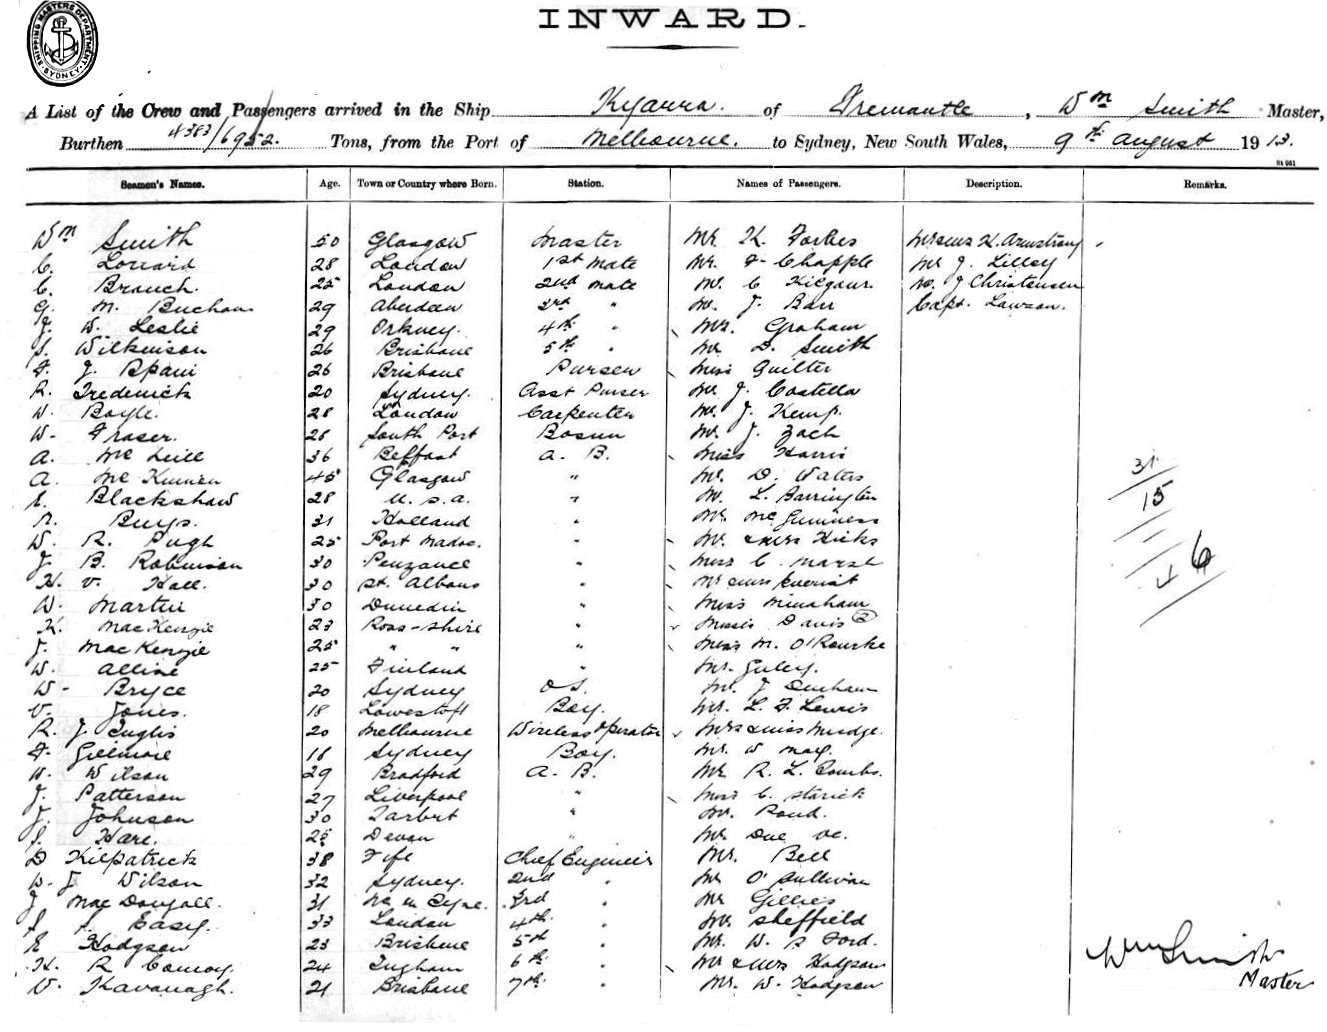 SHIPPING MASTERS DEPARTMENT. SYDNEY.
INWARD.
A List of the Crew and Passengers arrived in the Ship Kyarra. of Fremantle, Wm Smith Master,
Burthen 4383/6952. Tons, from the Port of Melbourne. to Sydney, New South Wales, 9th August 1913.
Seamen's Names. Age. Town or Country where Born. Station. Names of Passengers. Description. Remarks.
Wm Smith 50 Glasgow Master Mr K. Forbes K. Armstrong
C. 28 London 1st Mate Mr. F. Chapple Mr J. Lilley
C. Branch. 25 London 2nd Mate Mr. C Kilgour J Christensen
G. M. Buchan 29 Aberdeen 3rd " Mr. J. Barr Capt. Lawson.
J. W. Leslie 29 Orkney. 4th " Mrs. Graham
S. Wilkinson 26 Brisbane 5th " Mr D. Smith
F. J. 26 Brisbane Purser Miss Quilter
R. Frederick 20 Sydney. Asst Purser Mr J. Costello
W. Boyle. 28 London Carpenter Mr. J. Kemp.
W. Fraser. 28 South Port Bosun Mr J. Zach
A. McNeill 36 Belfast A. B. Miss Harris
A. McKinnon 45 Glasgow " Mr. D. Waters
E. Blackshaw 28 U. S. A. " Mr. L. Barrington
Buys. 31 Holland " Mr. McGuinness
W. R. Pugh 25 Port Madoc. " Mr. & Mrs Hicks
J. B. Robinson 30 Penzance " Miss C. Marsh
H. V. Hall. 30 St. Albans " Mr & Mrs
W. Martin 30 Dunedin " Miss Minaham
K. MacKenzie 23 Ross-shire " Misses Davis (2)
J. MacKenzie 25 " " " Miss M. O'Rourke
W. 25 Finland " Mr.
W. Bryce 20 Sydney O S. Mr. J Denham
V. Jones. 18 Lowestoft Boy. Mr. L. F. Lewis
R. J. Inglis 20 Melbourne Wireless Operator Mrs & Miss Mudge.
F. Gillmore 18 Sydney Boy. Mr. W May.
W. Wilson 29 Bradford A. B. Mr R. L. Combs.
J. Patterson 27 Liverpool " Miss C. Starick
J. Johnson 30 Tarbet " Mr. Pond.
J. Hare. 25 Devon " Mr
D Kilpatrick 38 Fife Chief Engineer Mr. Bell
W. J Wilson 32 Sydney. 2nd " Mr O'Sullivan
J MacDougall. 31 3rd " Mr Gillies
J. F. Easy. 33 London 4th " Mr. Sheffield
E Hodgson 23 Brisbane 5th " Mr. W. S Ford.
H. R Conroy. 24 Ingham 6th " Mr & Mrs Hodgson
V. Kavanagh. 21 Brisbane 7th " Mr. W. Hodgson
31
15
6
Wm Smith
Master